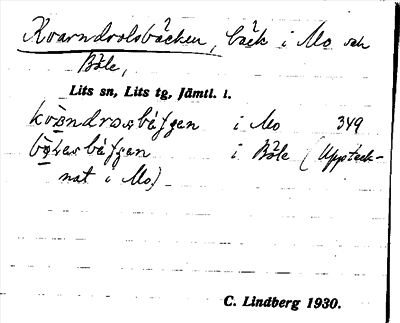 Kvarndrolsbäcken, bäck i Mo och
Böle,
Lits sn, Lits tg, Jämtl. l.
i Mo 349
i Böle (Uppteck-
nat i Mo)
C. Lindberg 1930.